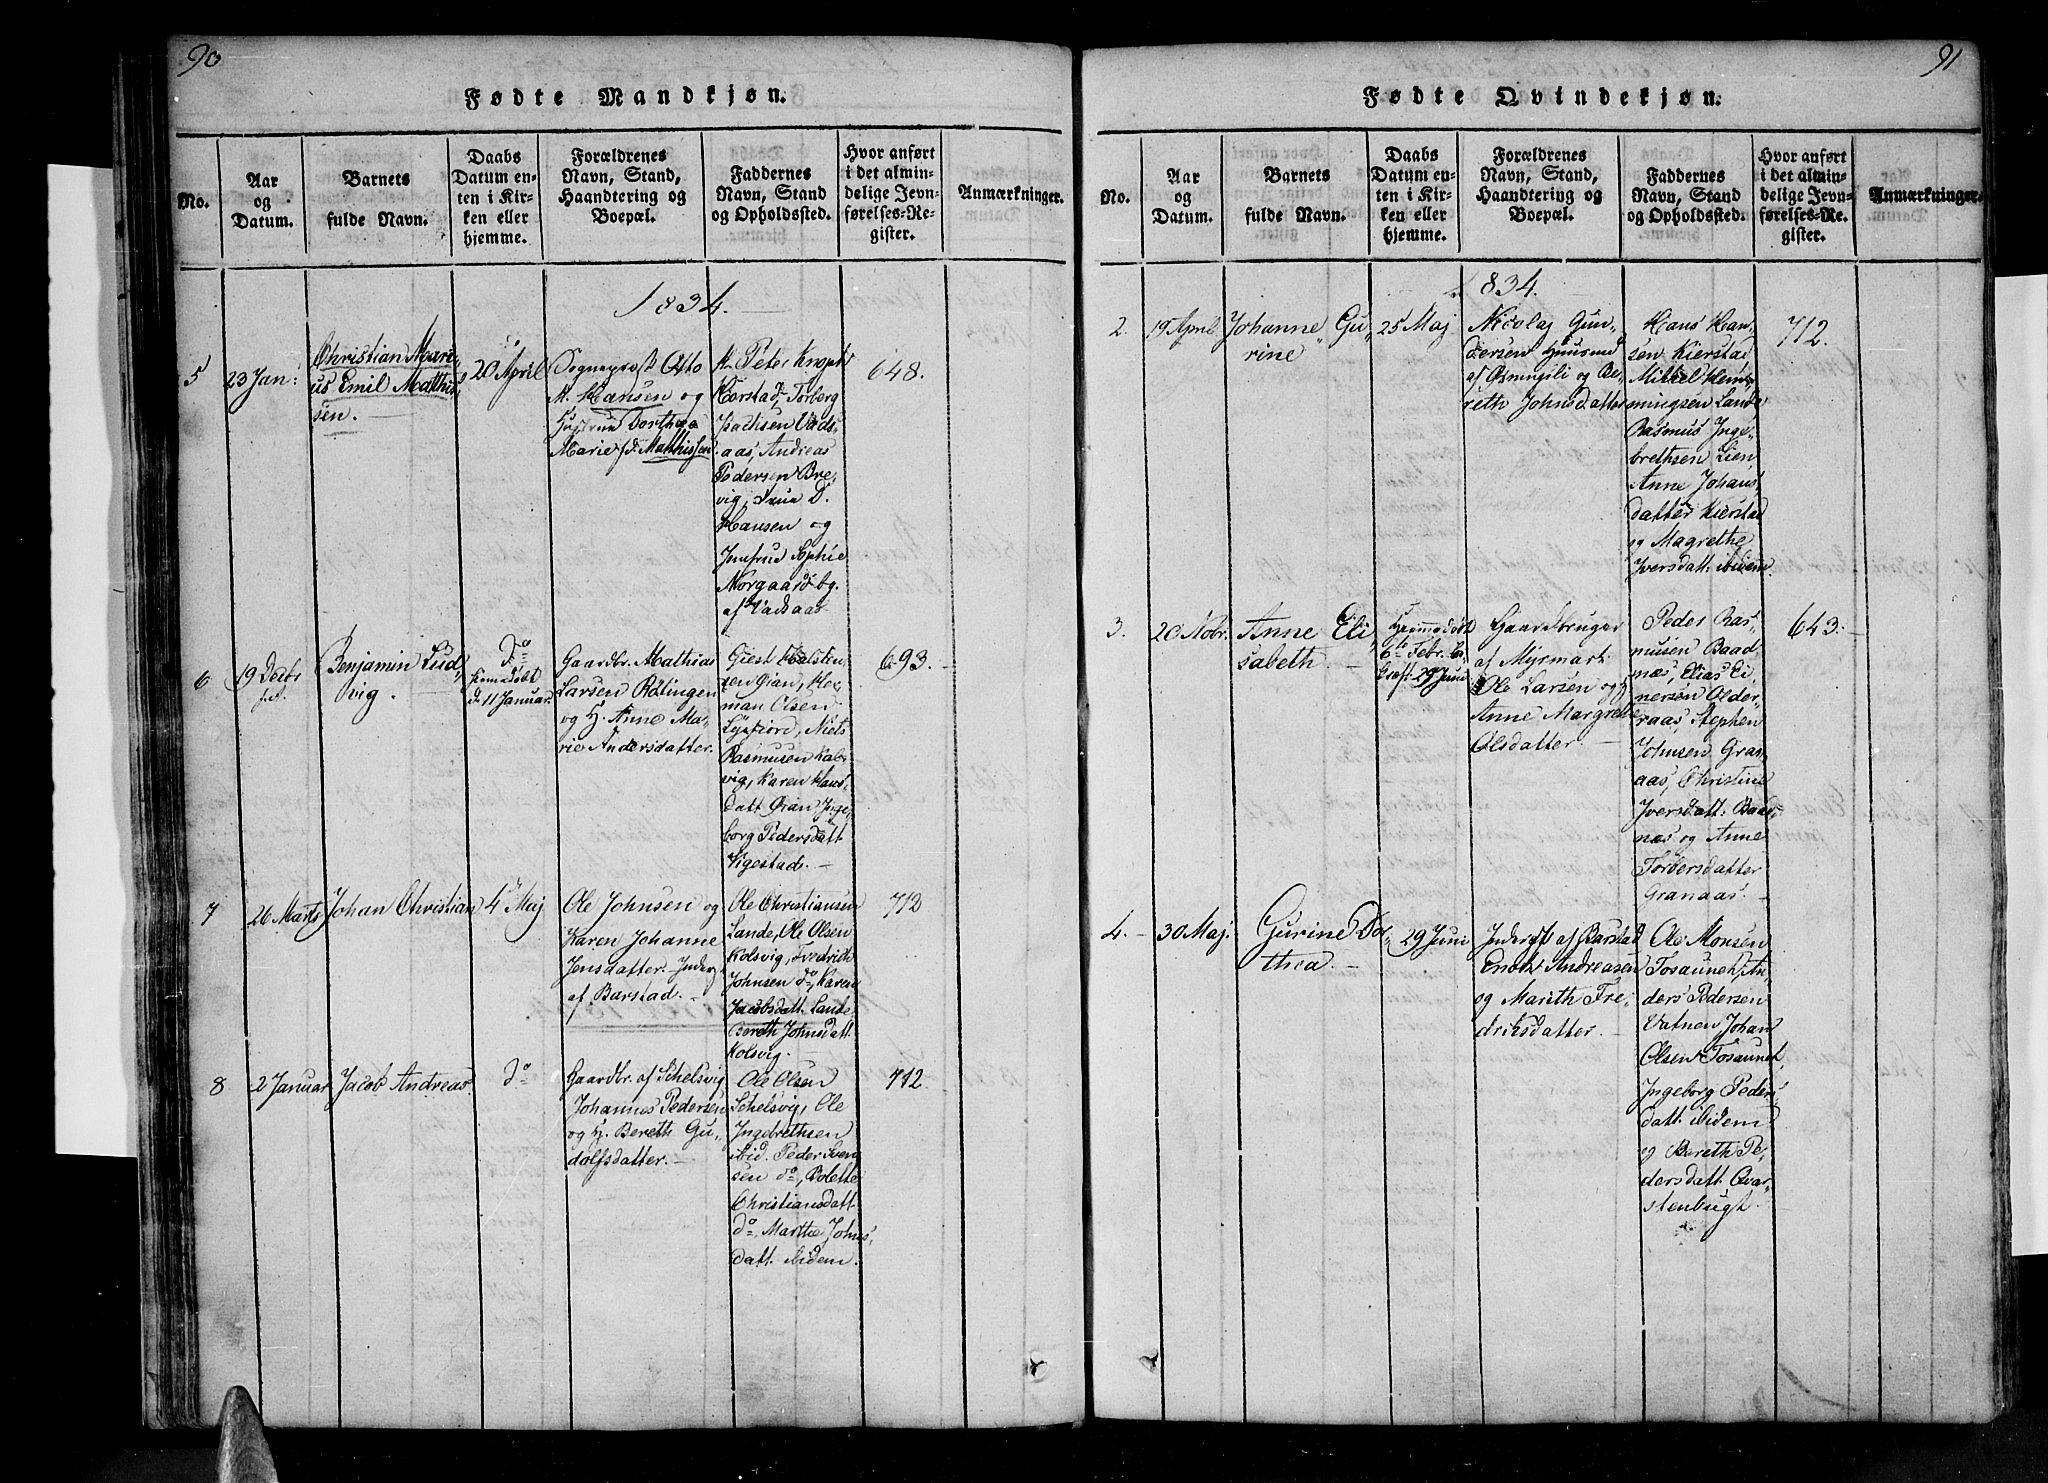 90
Fødte Mandkjøn.
No.
Aar
og
Datum.
Barnets
fulde Navn.
Daabs
Datum en-
ten i Kir-
ken eller
hjemme.
Forældrenes
Navn, Stand,
Haandtering og
Boepæl.
Faddernes
Navn, Stand
og Opholdssted.
Hvor anført
i det almin-
delige Jevn-
førelses-Re-
gister.
Anmærkninger.
1834.
5
23 Jan:
Christian Mari-
us Emil Matthis-
sen.
20 April
Sognepræst Otto
M. Hansen og
Hustrue Dorthea
Marie f. Matthissen
Hr. Peter
Kierstad, Torberg
Isachsen Vads-
aas, Andreas
Pedersen Bre-
vig, Frue D.
Hansen og
Jomfrue Sophie
Norgaard
af Vadsaas
648.
6
19 Decbr
Benjamin Lud-
vig.
do
hjemmedøbt
d. 11 Januar.
Gaardbr. Mathias
Larsen Røtingen
og H. Anne Ma-
rie Andersdatter.
Giert Halsten-
sen Øian, Her-
man Olsen
Lysfiord, Niels
Rasmusen Kals-
vig, Karen Hans-
datt Øian, Inge-
borg Pedersdatt
Vigestad.
693.
7
26 Marts
Johan Christian
4 Maj
Ole Johnsen og
Karen Johanne
Jensdatter. Inderst
af Barstad.
Ole Christiansen
Lande, Ole Olsen
Kolsvig, Fredrich
Johnsen do, Karen
Jacobsdatt. Lande
Bereth Johnsdatt
Kolsvig.
712
8
2 Januar
Jacob Andreas
do
Gaardbr. af Schelsvig
Johannes Pedersen
og H. Bereth Gu-
dolfsdatter.
Ole Olsen
Schelsvig, Ole
Ingebrethsen
ibid. Peder Iven-
sen do, Bolette
Christiansdatt.
do, Marthe Johns-
datt. ibidem.
712.
91
Fødte Qvindekjøn.
No.
Aar
og
Datum.
Barnets
fulde Navn.
Daabs
Datum en-
ten i Kir-
ken eller
hjemme.
Forældrenes
Navn, Stand,
Haandtering og
Boepæl.
Faddernes
Navn, Stand
og Opholdssted.
Hvor anført
i det almin-
delige Jevn-
førelses-Re-
gister.
Anmærkninger.
1834.
2.
19 April
Johanne Gu-
rine
25 Maj
Nicolaj Gun-
dersen Huusmd
af Øvmyrli og Be-
reth Johnsdatter
Hans Han-
sen Kierstad
Mikkel Hem-
mingsen Lande
Rasmus Inge-
brethsen Lien,
Anne Johans-
datter Kierstad
og Magrethe
Iversdatt. ibidem.
712.
3.
20 Nobr.
Anne Eli-
sabeth.
Hjemmedøbt
6te Febr.
29 Juni
Gaardbruger
af Myrmark
Ole Larsen og H
Anne Margrethe
Olsdatter.
Peder Ras-
musen Baad-
næs, Elias Ei-
nersen Older-
raas, Stephen
Johnsen Gran-
aas, Christine
Iversdatt. Baad-
næs og Anne
Torbersdatter
Granaas.
643.
4.
30 Maj.
Gurine Do-
thea.
29 Juni
Inderst af Barstad
Enoch Andreasen
og Marith Fre-
driksdatter.
Ole Monsen
Tosaunet, An-
ders Pedersen
Vatnen, Johan
Olsen Tosaunet,
Ingeborg Peders-
datt. ibidem
og Bereth Pe-
dersdatt. Qvar-
stenbugt.